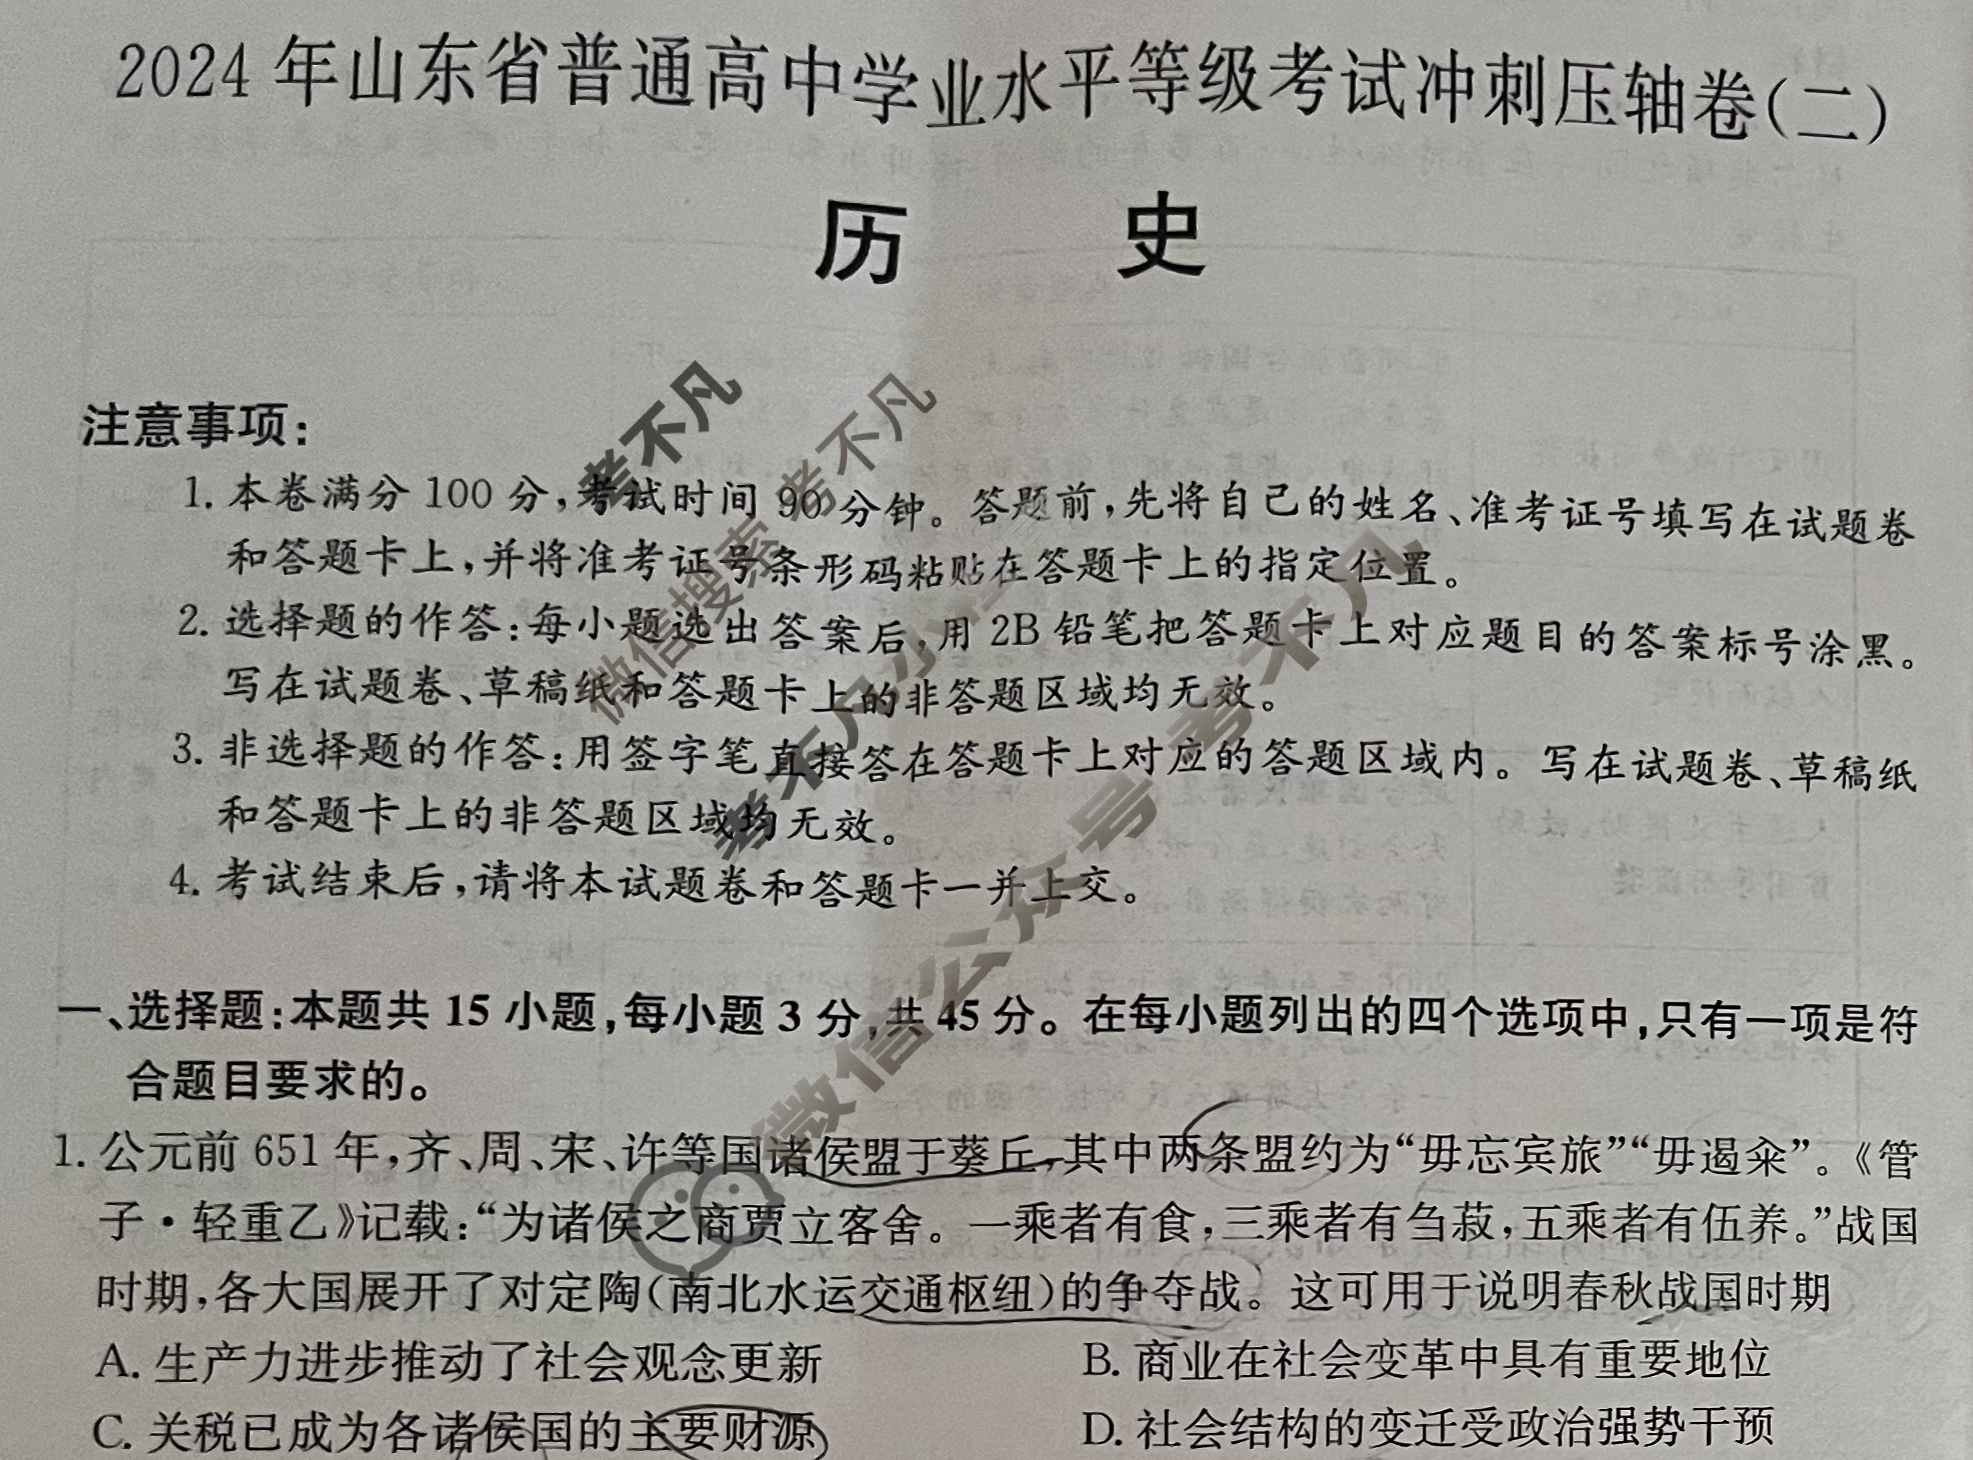 2024年山东省普通高中学业水平等级考试冲刺压轴卷(二)
历 史
注意事项:
1. 本卷满分 100 分,考试时间 90 分钟。答题前,先将自己的姓名、准考证号填写在试题卷
和答题卡上,并将准考证号条形码粘贴在答题卡上的指定位置。
2. 选择题的作答:每小题选出答案后,用 2B 铅笔把答题卡上对应题目的答案标号涂黑。
写在试题卷、草稿纸和答题卡上的非答题区域均无效。
3. 非选择题的作答:用签字笔直接答在答题卡上对应的答题区域内。写在试题卷、草稿纸
和答题卡上的非答题区域均无效。
4. 考试结束后,请将本试题卷和答题卡一并上交。
一、选择题:本题共 15 小题,每小题 3 分,共 45 分。在每小题列出的四个选项中,只有一项是符
合题目要求的。
1. 公元前 651 年,齐、周、宋、许等国诸侯盟于葵丘,其中两条盟约为“毋忘宾旅”“毋遏籴”。《管
子·轻重乙》记载:“为诸侯之商贾立客舍。一乘者有食,三乘者有刍菽,五乘者有伍养。”战国
时期,各大国展开了对定陶(南北水运交通枢纽)的争夺战。这可用于说明春秋战国时期
A. 生产力进步推动了社会观念更新
B. 商业在社会变革中具有重要地位
C. 关税已成为各诸侯国的主要财源
D. 社会结构的变迁受政治强势干预
考不凡
微信搜索 考不凡
微信公众号 考不凡